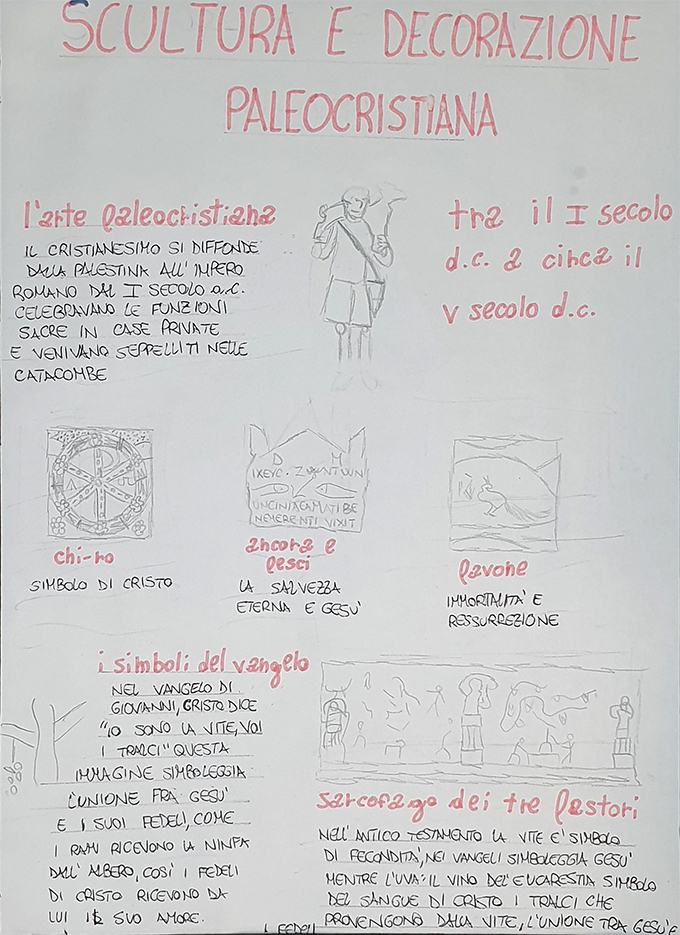 SCULTURA E DECORAZIONE
PALEOCRISTIANA
l'arte paleocristiana
IL CRISTIANESIMO SI DIFFONDE
DALLA PALESTINA ALL' IMPERO
ROMANO DAL I SECOLO a.C.
CELEBRAVANO LE FUNZIONI
SACRE IN CASE PRIVATE
E VENIVANO SEPPELLITI NELLE
CATACOMBE
tra il I secolo
d.c. a circa il
v secolo d.c.
A P
D M
IXEYC.
UNCINIAEAMATI BE
NEMERENTI VIXIT
chi-ro
SIMBOLO DI CRISTO
ancora e
pesci
LA SALVEZZA
ETERNA E GESU'
pavone
IMMORTALITA' E
RESSURREZIONE
i simboli del vangelo
NEL VANGELO DI
GIOVANNI, CRISTO DICE
"IO SONO LA VITE, VOI
I TRALCI" QUESTA
IMMAGINE SIMBOLEGGIA
L'UNIONE FRA GESU'
E I SUOI FEDELI, COME
I RAMI RICEVONO LA NINFA
DALL' ALBERO, COSI' I FEDELI
DI CRISTO RICEVONO DA
LUI IL SUO AMORE.
sarcofago dei tre pastori
NELL' ANTICO TESTAMENTO LA VITE E' SIMBOLO
DI FECONDITA', NEI VANGELI SIMBOLEGGIA GESU'
MENTRE L'UVA: IL VINO DEL' EUCARESTIA SIMBOLO
DEL SANGUE DI CRISTO I TRALCI CHE
PROVENGONO DALLA VITE, L'UNIONE TRA GESU' E
I FEDELI